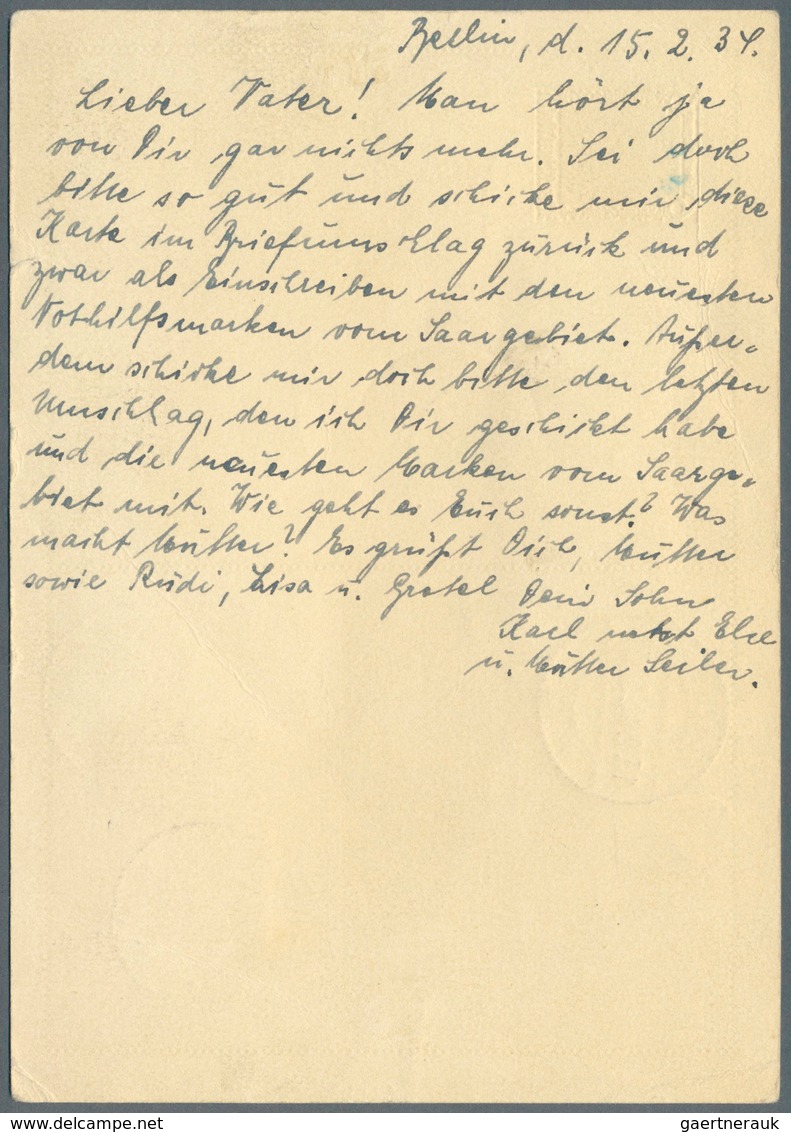 Berlin, d. 15. 2. 34.
Lieber Vater! Man hört ja
von Dir gar nichts mehr. Sei doch
bitte so gut und schicke mir diese
Karte im Briefumschlag zurück und
zwar als Einschreiben mit den neuesten
Nothilfsmarken vom Saargebiet. Außer-
dem schicke mir doch bitte den letzten
Umschlag, den ich Dir geschickt habe
und die neuesten Marken vom Saarge-
biet mit. Wie geht es Euch sonst? Was
macht Mutter? Es grüßt Dich, Mutter
sowie Rudi, Lisa u. Gretel Dein Sohn
Karl nebst Else
u. Mutter Seiler.
gaertnerauk